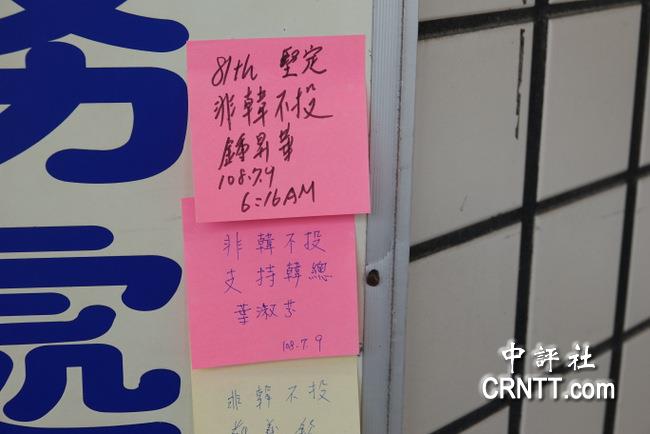 務
完
81th 堅定
非韓不投
鍾昇華
108.7.9
6:16AM
非韓不投
支持韓總
葉淑芬
108.7.9
非韓不投
中評社
CRNTT.com